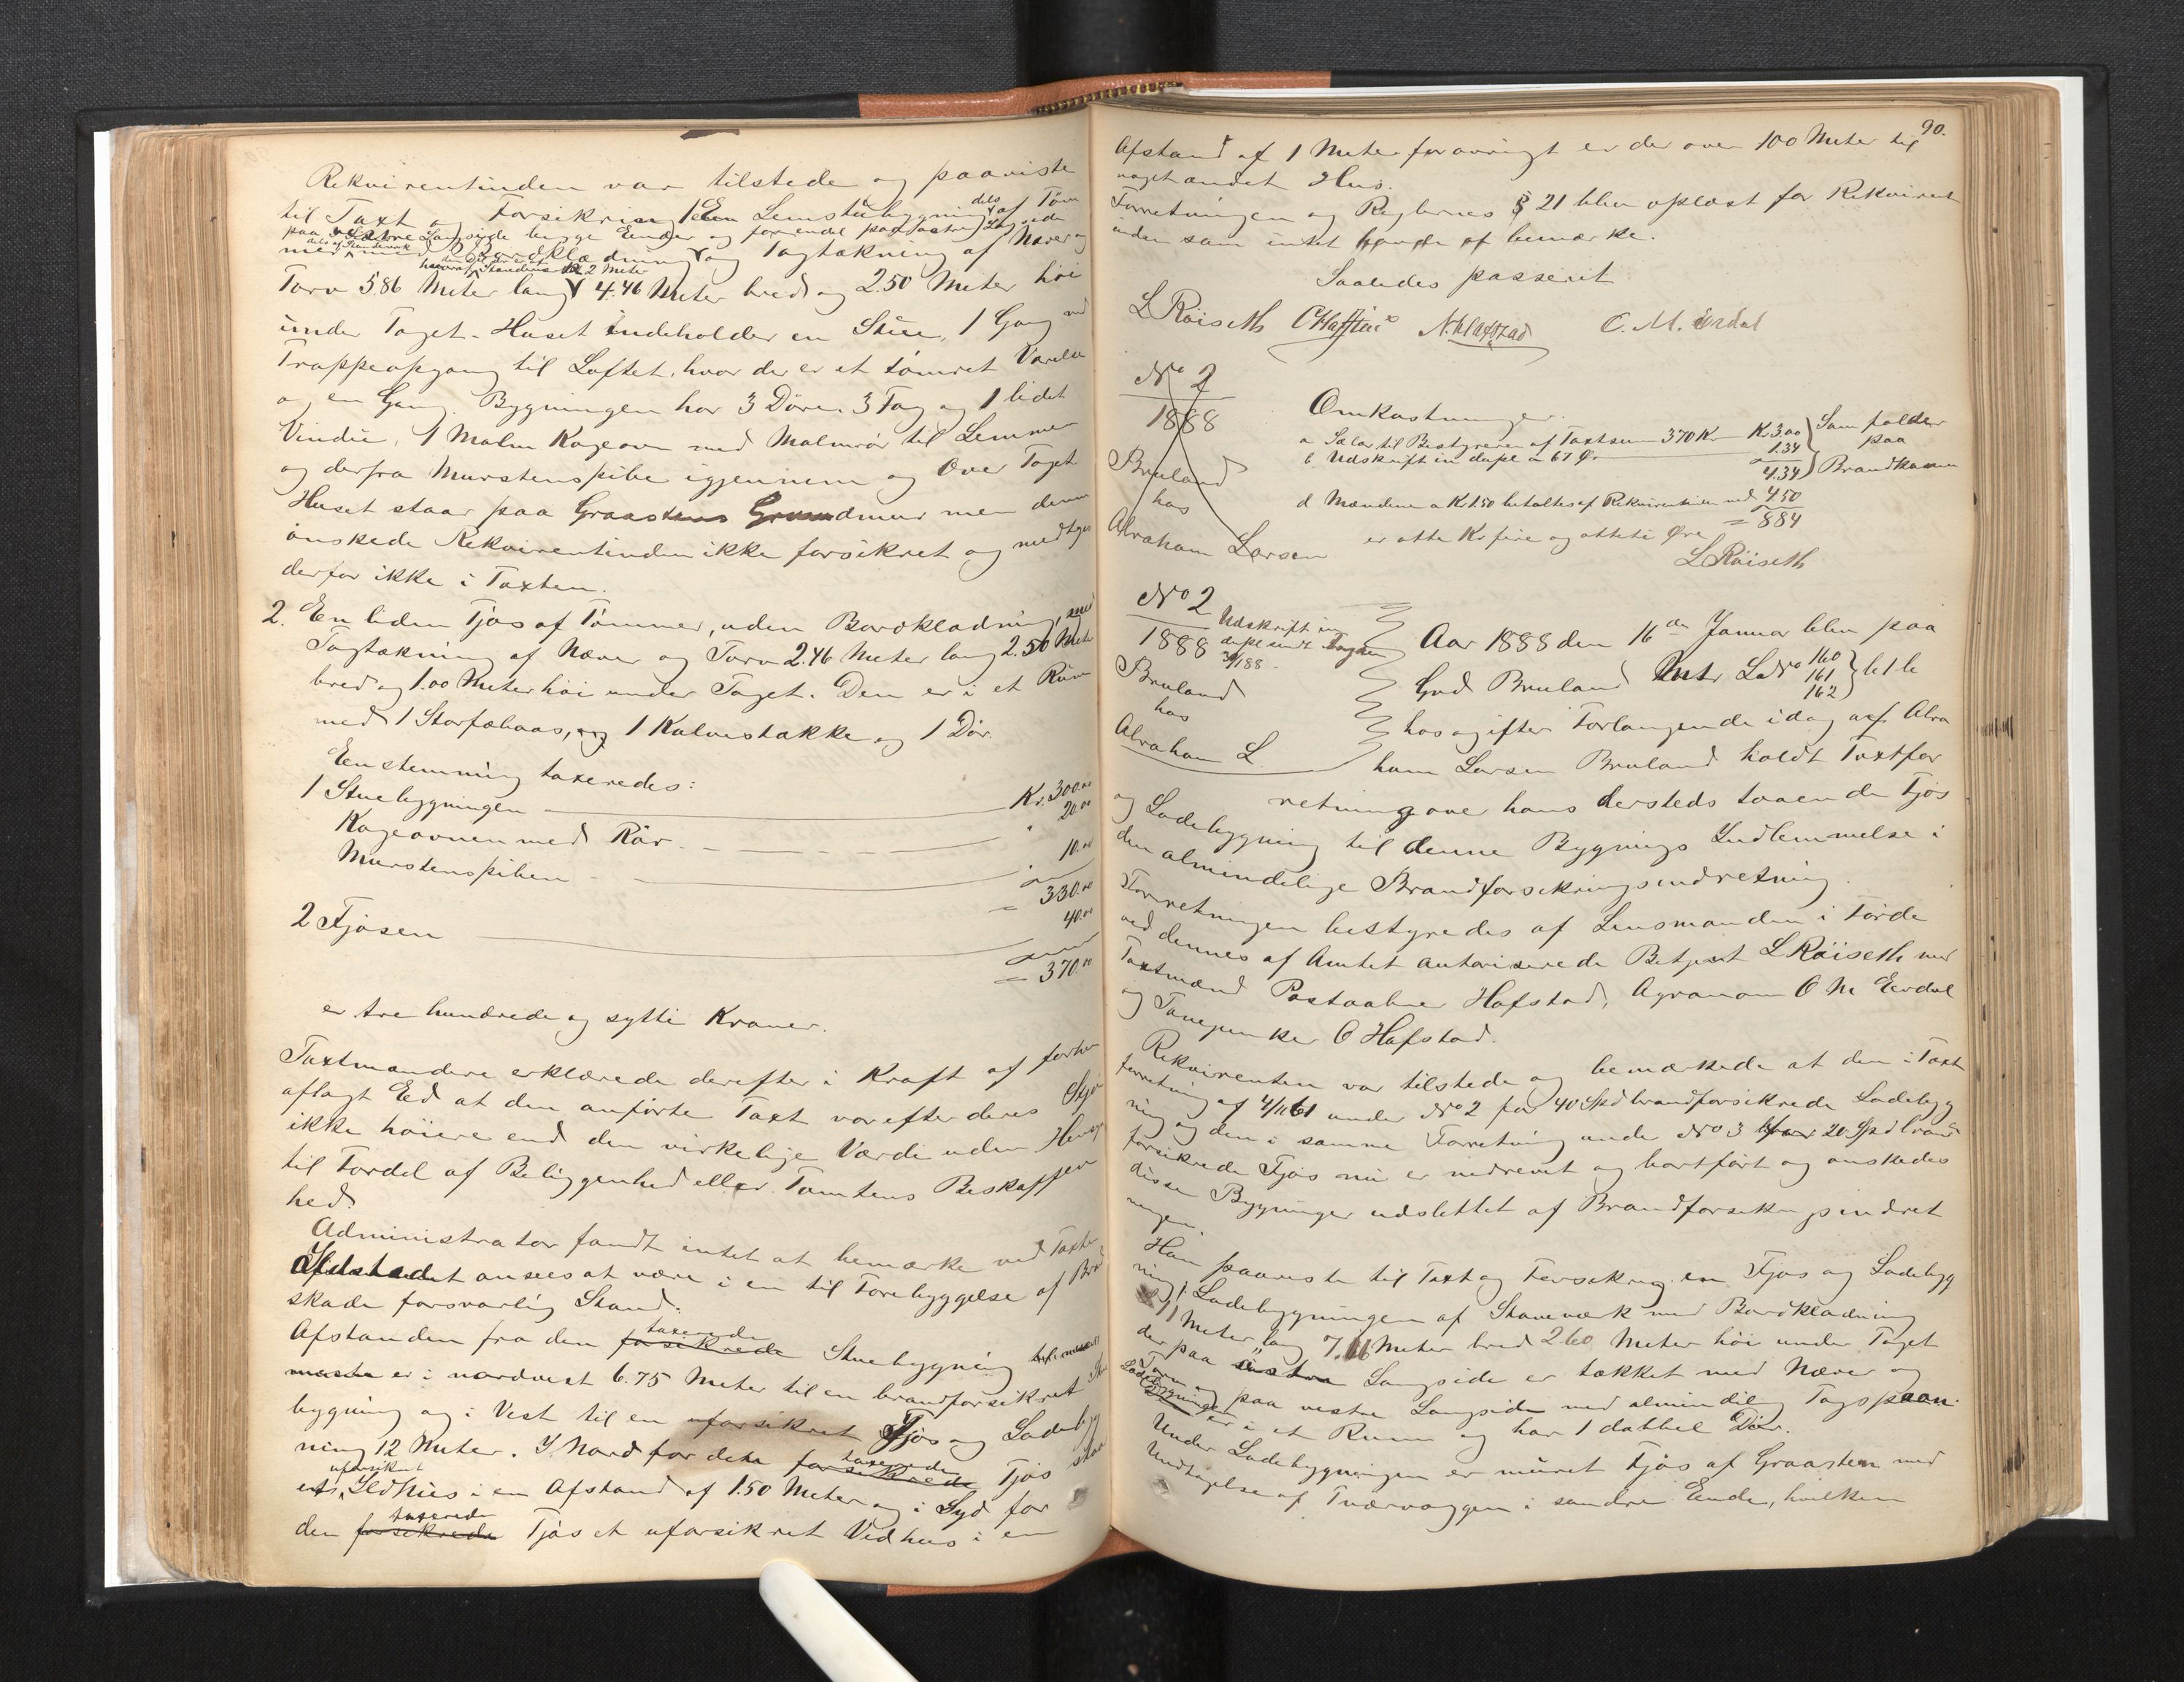 Rekvirentinden var tilstede og paaviste
til Taxt og Forsikring 1 Een Lemstübygning dels af Töm
paa vestre Langside begge Ender og for endel paa östre Lang side
dels af Standverk
med Bordklædning og Tagtækning af Næver og
hvoraf Standverk 2 Meter
Torv 5.86 Meter lang 4.46 Meter bred og 2.50 Meter höi
ünder Taget. Huset indeholder en Stüe, 1 Gang med
Trappeopgang til Loftet, hvor der er et tömret Værelse
og en Gang. Bygningen har 3 Döre. 3 Fag og 1 lidet
Vindü, 1 Malm Kogeovn med Malmrör til Lemmen
og derfra Murstenspibe igjennem og Over Taget.
Huset staar paa Graastens Grundmur men denne
önskede Rekvirentinden ikke forsikret og medtages
derfor ikke i Taxten.
2. En liden Fjös af Tömmer, uden Bordklædning, med
Tagtækning af Næver og Torv 2.46 Meter lang 2.50 Meter
bred og 1.00 Meter höi under Taget. Den er i et Rüm
med 1 Storfæbaas, og 1 Kalvestakke og 1 Dör.
Eenstemmig taxeredes:
1 Stuebygningen Kr. 300.00
Kogeovnen med Rör " 20.00
Murstenspiben 10.00
= 330.00
2 Fjösen 40.00
= 370.00
er tre hundrede og sytti Kroner.
Taxtmændene erklærede derefter i Kraft af forhen
aflagt Ed at den anförte Taxt var efter deres Skjön
ikke höiere end den virkelige Værdi uden Hensyn
til Fordel af Beliggenhed eller Tomtens Beskaffen
hed.
Administrator fandt intet at bemærke ved Taxten
Ildstedet ansees at være i en til Forebyggelse af Brand
skade forsvarlig Stand.
taxerede
Afstanden fra den forsikrede Stuebygning
er i nordvest 6.75 Meter til en brandforsikret Stue
bygning og i Vest til en uforsikret Fjös og Ladebyg
ning 12 Meter. I Nord for dete taxerede forsikrede Fjös staar
uforsikret
et Ildhus i en Afstand af 1.50 Meter og i Syd for
taxerede
den forsikrede Fjös et uforsikret Vedhus i en
90.
Afstand af 1 Meter forövrigt er der over 100 Meter til
noget andet Hus.
Forretningen og Reglernes § 21 blev oplæst for Rekvirent
inden som intet havde at bemærke.
Saaledes passeret
L Röiseth O Hafstad N. Hafstad O. M. Erdal
No 2
1888
Bruland
hos
Abraham Larsen
Omkostninger.
a Salar til Bestyreren af Taxtsum 370 Kr Kr 3.00 Som falder
b Udskrift in duplo a 67 Ø. 1.34 paa
4.34 Brandkassen
d Mændene a Kr 1.50 betaltes af Rekvirentinden med 4.50
= 8.84
er otte Kr fire og otteti Öre
L Röiseth
No 2
1888
Udskrift in
duplo sendt
Bruland
hos
Abraham L.
Aar 1888 den 16de Januar blev paa
Grd Bruland Mtr. L. No 160 161 162
hos og efter Forlangende idag af Abra
ham Larsen Bruland holdt Taxtfor
retning over hans dersteds staaende Fjös
og Ladebygning til denne Bygnings Indlemmelse i
den almindelige Brandforsikringsindretning.
Forretningen bestyredes af Lensmanden i Förde
ved dennes af Amtet autoriserede Betjent L Röiseth med
Taxtmænd Postaabner Hafstad, Agronom O M Erdal
og O Hafstad.
Rekvirenten var tilstede og bemærkede at den i Taxt
forretning af 4/11 61 under No 2 for 40 Spd brandforsikrede Ladebyg
ning og den i samme Forretning under No 3 for 20 Spd brand
forsikrede Fjös nu er nedrevet og bortfört og önskedes
disse Bygninger udslettet af Brandforsikringsindret
ningen.
Han paaviste til Taxt og Forsikring en Fjös og Ladebyg
ning: Ladebygningen af Stavværk med Bordklædning
11 Meter lang 7. Meter bred 2.60 Meter höi under Taget
der paa östre Langside er tækket med Næver og
Torv og paa vestre Langside med almindelig Tagspaan.
Ladebygningen er i et Rum og har 1 dobbel Dör.
Under Ladebygningen er müret Fjös af Graasten med
Undtagelse af Tværvæggen i söndre Ende, hvilken